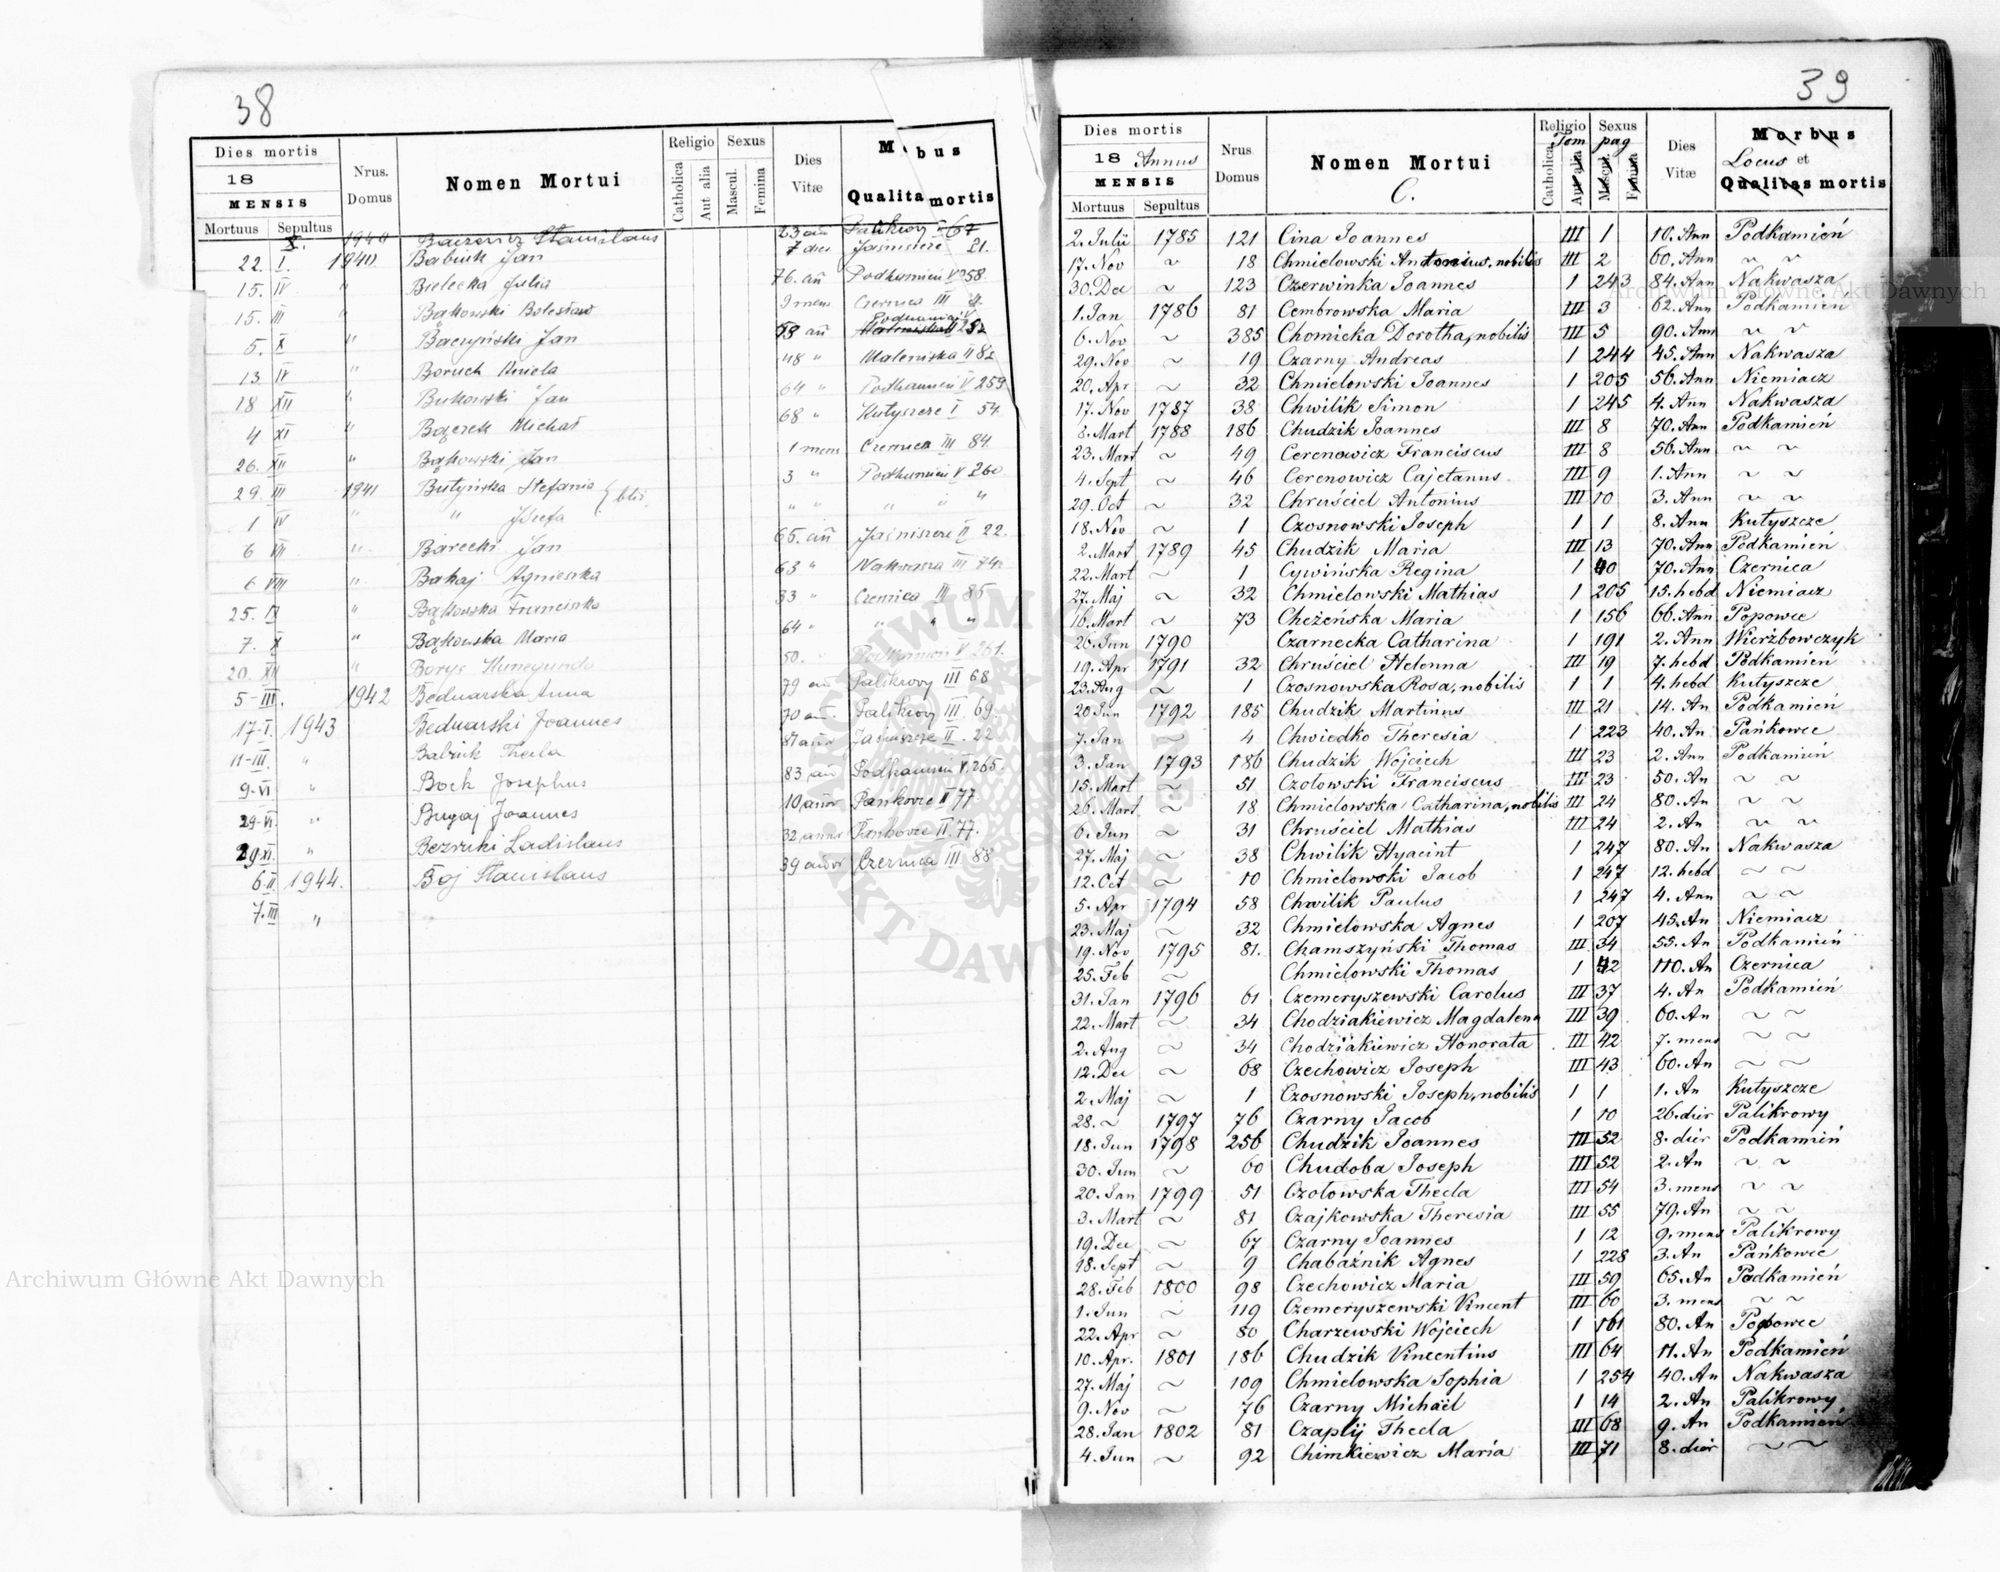 38
Dies mortis
18
MENSIS
Mortuus Sepultus
Nrus. Domus
Nomen Mortui
Religio
Catholica Aut alia
Sexus
Mascul. Femina
Dies Vitæ
Mobus
Qualita mortis
1940 Stanislaus 23 an Palikrovy 67
22. I. 1940 Babiuk Jan 7 dies 21.
15. IV " Bielecka Julia 76. an Podkamień V 258
15. III " Bąkowski Bolesław 9 mens Czernica III
5. X " Baczyński Jan 58 an
13. IV " Boruch Aniela 48 " Maleniska II 82
18 XII " Bukowski Jan 64 " Podkamień V 259
4 XI " Michał 68 " Kutyszcze I 54
26. XII " Bąkowski Jan 1 mens Czernica III 84.
29. III 1941 Butyńska Stefania 3 " Podkamień V 260
1 IV " " Józefa " " " " "
6 VII " Barecki Jan 65. an Jaśniszcze II 22.
6 VIII " Bakaj Agnieszka 63 " Nakwasza III 74
25. IX " Bąkowska Franciszka 83 " Czernica III 85
7. X " Bąkowska Maria 64 " " " "
20. XII " Borys Kunegunda 50. " Podkamień V 261.
5-III. 1942 Bednarska Anna 79 an Palikrovy III 68
17-I. 1943 Bednarski Joannes 70 an. Palikrovy III 69
11-III. " Babiuk Thecla 81 Jaśniszcze II. 22
9-VI " Bock Josephus 83 an Podkamień V. 265.
29-VI. " Bugaj Joannes 10 Pankovce II 77
29 XI. " Ladislaus 32 Pankovce II. 77.
6 II 1944. Bój Stanislaus 39 Czernica III 88
7. III "
39
Dies mortis
18 Annus
MENSIS
Mortuus Sepultus
Nrus Domus
Nomen Mortui
C.
Religio Tom
Catholica Aut alia
Sexus pag
Mascul. Femina
Dies Vitæ
Morbus
Locus et
Qualitas mortis
2. Julii 1785 121 Cina Joannes III 1 10. Ann Podkamień
17. Nov ~ 18 Chmielowski Antonius, nobilis III 2 60. Ann ~ ~
30. Dec ~ 123 Czerwinka Joannes 1 243 84. Ann Nakwasza
1. Jan 1786 81 Cembrowska Maria III 3 62. Ann Podkamień
6. Nov ~ 385 Chomicka Dorotha, nobilis III 5 90. Ann ~ ~
29. Nov ~ 19 Czarny Andreas 1 244 45. Ann Nakwasza
20. Apr ~ 32 Chmielowski Joannes 1 205 56. Ann Niemiacz
17. Nov 1787 38 Chwilik Simon 1 245 4. Ann Nakwasza
8. Mart 1788 186 Chudzik Joannes III 8 70. Ann Podkamień
23. Mart ~ 49 Cerenowicz Franciscus III 8 56. Ann ~ ~
4. Sept ~ 46 Cerenowicz Cajetanus III 9 1. Ann ~ ~
29. Oct ~ 32 Chruściel Antonius III 10 3. Ann ~ ~
18. Nov ~ 1 Czosnowski Joseph 1 1 8. Ann Kutyszcze
2. Mart 1789 45 Chudzik Maria III 13 70. Ann Podkamień
22. Mart ~ 1 Cywińska Regina 1 40 70. Ann Czernica
27. Maj ~ 32 Chmielowski Mathias 1 205 15. hebd Niemiacz
16. Mart ~ 73 Cheżeńska Maria 1 156 66. Ann Popowce
26. Jun 1790 Czarnecka Catharina 1 191 2. Ann Wierzbowczyk
19. Apr 1791 32 Chruściel Helenna III 19 7. hebd Podkamień
23. Aug ~ 1 Czosnowska Rosa, nobilis 1 1 4. hebd Kutyszcze
20 Jun 1792 185 Chudzik Martinus III 21 14. An Podkamień
7. Jan ~ 4 Chwiedko Theresia 1 223 40. An Pańkowce
3. Jan 1793 186 Chudzik Wojciech III 23 2. Ann Podkamień
15. Mart ~ 51 Czołowski Franciscus III 23 50. An ~ ~
26. Mart ~ 18 Chmielowska Catharina, nobilis III 24 80. An ~ ~
6. Jun ~ 31 Chruściel Mathias III 24 2. An ~ ~
27. Maj ~ 38 Chwilik Hyacint 1 247 80. An Nakwasza
12. Oct ~ 10 Chmielowski Jacob 1 247 12. hebd ~ ~
5. Apr 1794 58 Chwilik Paulus 1 247 4. Ann ~ ~
23. Maj ~ 32 Chmielowska Agnes 1 207 45. An Niemiacz
19. Nov 1795 81. Chamszyński Thomas III 34 55. An Podkamień
25. Feb ~ Chmielowski Thomas 1 42 110. An Czernica
31. Jan 1796 61 Czemeryszewski Carolus III 37 4. An Podkamień
22. Mart ~ 34 Chodziakiewicz Magdalena III 39 60. An ~ ~
2. Aug ~ 34 Chodziakiewicz Honorata III 42 7. mens ~ ~
12. Dec ~ 68 Czechowicz Joseph III 43 60. An ~ ~
2. Maj ~ 1 Czosnowski Joseph, nobilis 1 1 1. An Kutyszcze
28. ~ 1797 76 Czarny Jacob 1 10 26. dier Palikrowy
18. Jun 1798 256 Chudzik Joannes III 52 8. dier Podkamień
30. Jun ~ 60 Chudoba Joseph III 52 2. An ~ ~
20. Jan 1799 51 Czołowska Thecla III 54 3. mens ~ ~
3. Mart ~ 81 Czajkowska Theresia III 55 79. An ~ ~
19. Dec ~ 67 Czarny Joannes 1 12 9. mens Palikrowy
18. Sept ~ 9 Chabaźnik Agnes 1 228 3. An Pańkowce
28. Feb 1800 98 Czechowicz Maria III 59 65. An Podkamień
1. Jun ~ 119 Czemeryszewski Vincent III 60 3. mens ~ ~
22. Apr ~ 80 Charzewski Wojciech 1 161 80. An Popowce
10. Apr. 1801 186 Chudzik Vincentius III 64 11. An Podkamień
27. Maj ~ 109 Chmielowska Sophia 1 254 40. An Nakwasza
9. Nov ~ 76 Czarny Michaël 1 14 2. An Palikrowy
28. Jan 1802 81 Czaplij Thecla III 68 9. An Podkamień
4. Jun ~ 92 Chimkiewicz Maria III 71 8. dier ~ ~
Archiwum Główne Akt Dawnych
Archiwum Główne Akt Dawnych
ARCHIWUM GŁÓWNE AKT DAWNYCH